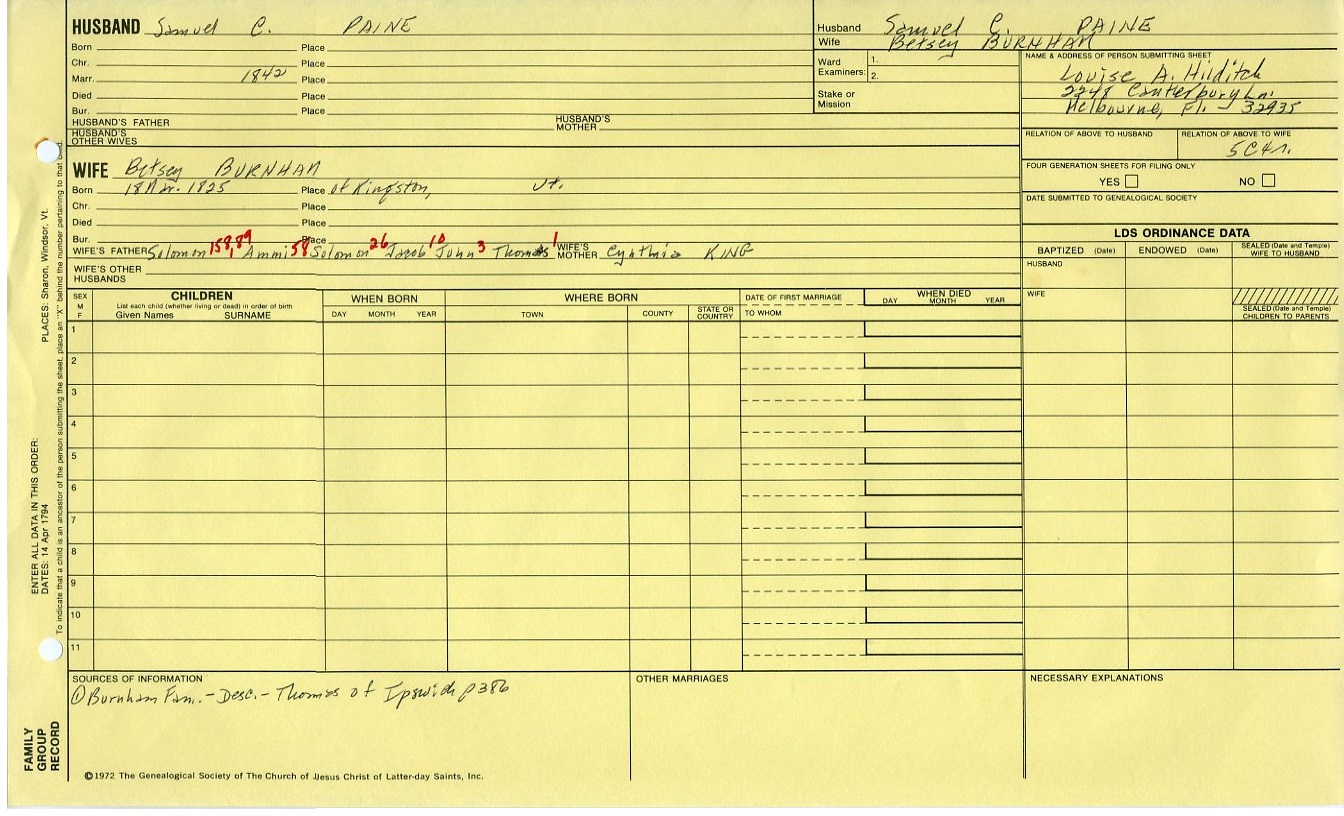 HUSBAND Samuel C. PAINE
Born Place
Chr. Place
Marr. 1842 Place
Died Place
Bur. Place
HUSBAND'S FATHER HUSBAND'S MOTHER
HUSBAND'S OTHER WIVES
Husband Samuel C. PAINE
Wife Betsey BURNHAM
Ward Examiners: 1.
2.
Stake or Mission
NAME & ADDRESS OF PERSON SUBMITTING SHEET
Louise A. Hilditch
2248 Canterbury Ln.
Melbourne, Fl. - 32935
RELATION OF ABOVE TO HUSBAND RELATION OF ABOVE TO WIFE
5C4r.
FOUR GENERATION SHEETS FOR FILING ONLY
YES NO
DATE SUBMITTED TO GENEALOGICAL SOCIETY
WIFE Betsey BURNHAM
Born 1825 Place of Kingston, Vt.
Chr. Place
Died Place
Bur. Place
WIFE'S FATHER Solomon 158,89 Ammi 58 Solomon 26 Jacob 10 John 3 Thomas 1 WIFE'S MOTHER Cynthia KING
WIFE'S OTHER HUSBANDS
LDS ORDINANCE DATA
BAPTIZED (Date) ENDOWED (Date) SEALED (Date and Temple) WIFE TO HUSBAND
HUSBAND
WIFE
SEALED (Date and Temple) CHILDREN TO PARENTS
SEX M F
CHILDREN
List each child (whether living or dead) in order of birth
Given Names SURNAME
WHEN BORN
DAY MONTH YEAR
WHERE BORN
TOWN COUNTY STATE OR COUNTRY
DATE OF FIRST MARRIAGE
TO WHOM
WHEN DIED
DAY MONTH YEAR
1
2
3
4
5
6
7
8
9
10
11
SOURCES OF INFORMATION
① Burnham Fam. - Desc. - Thomas of Ipswich p386
OTHER MARRIAGES
NECESSARY EXPLANATIONS
©1972 The Genealogical Society of The Church of Jesus Christ of Latter-day Saints, Inc.
FAMILY GROUP RECORD
ENTER ALL DATA IN THIS ORDER:
DATES: 14 Apr 1794
PLACES: Sharon, Windsor, Vt.
To indicate that a child is an ancestor of the person submitting the sheet, place an "X" behind the number pertaining to that